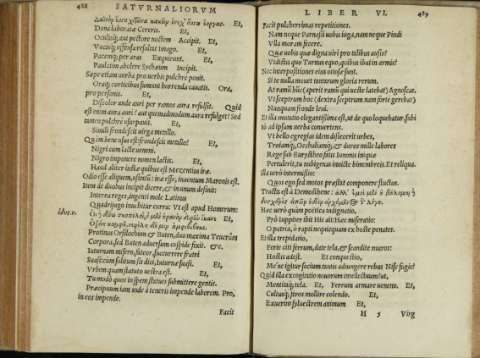 488 SATVRNALIORVM
Et,
Dona laboratæ Cereris. Et,
Oculisq; aut pectore noctem Accipit. Et,
Vocisq; offensa resultat imago. Et,
Pacemq; per aras Exquirunt. Et,
Paulatim abolere Sychæum Incipit.
Sæpe etiam uerba pro uerbis pulchre ponit.
Oraq; corticibus sumunt horrenda cauatis. Ora,
pro personis. Et,
Discolor unde auri per ramos aura refulsit. Quid
est enim aura auri? aut quemadmodum aura refulget? Sed
tamen pulchre usurpauit. Et,
Simili frondescit uirga metallo.
Quàm bene usus est frondescit metallo? Et,
Nigri cum lacte ueneni.
Nigro imponere nomen lactis. Et,
Haud aliter iustæ quibus est Mezentius iræ.
Odio esse aliquem, usitatū: iræ esse, inuentum Maronis est.
Item de duobus incipit dicere, & in unum definit:
Interea reges, ingenti mole Latinus
Quadriiugo inuehitur curru: Vt est apud Homerum:
Protinus Orsilochum & Buten, duo maxima Teucrûm
Corpora, sed Buten aduersum cuspide fixit. &c.
Iuturnam misero, fateor, succurrere fratri
Suasi: cum solitum sit dici, Iuturnæ suasi. Et,
Vrbem quam statuo uestra est. Et,
Tu modo quos in spem statues submittere gentis.
Præcipuum iam inde à teneris impende laborem. Pro,
in eos impende.
Facit
LIBER VI. 489
Facit pulcherrimas repetitiones.
Nam neque Parnasi uobis iuga, nam neque Pindi
Vlla moram fecere.
Quæ uobis quæ digna uiri pro talibus ausis?
Vidistis quo Turnus equo, quibus ibat in armis?
Nec interpositiones eius otiosæ sunt.
Si te nulla mouet tantarum gloria rerum.
At ramū hūc (aperit ramū qui ueste latebat) Agnoscas.
Vt sceptrum hoc (dextra sceptrum nam forte gerebat)
Nunquam fronde leui.
Et illa mutatio elegantissima est, ut de quo loquebatur, subi
tò ad ipsum uerba conuertens.
Vt bello egregias idem disiecerit urbes,
Troiamq; Oechaliamq; & duros mille labores
Rege sub Eurystheo fatis Iunonis iniquæ
Pertulerit, tu nubigenas inuicte bimembres. Et reliqua.
Illa uerò intermissio:
Quos ego sed motos præstat componere fluctus.
Tracta est à Demosthene:
Hæc uerò quàm poetica indignatio,
Prô iuppiter ibit Hic ait: Hæc miseratio:
O patria, ô rapti nequicquam ex hoste penates.
Et illa trepidatio,
Ferte citi ferrum, date tela, & scandite muros:
Hostis adest. Et conquestio,
Me'ne igitur socium tantis adiungere rebus Nise fugis?
Quid illa excogitatio nouorum intellectuum? ut,
Mentitaq; tela. Et Ferrum armare uenenis. Et,
Cultusq; feros mollire colendo. Et,
Exuerint syluestrem animum Et,
H 5 Virg